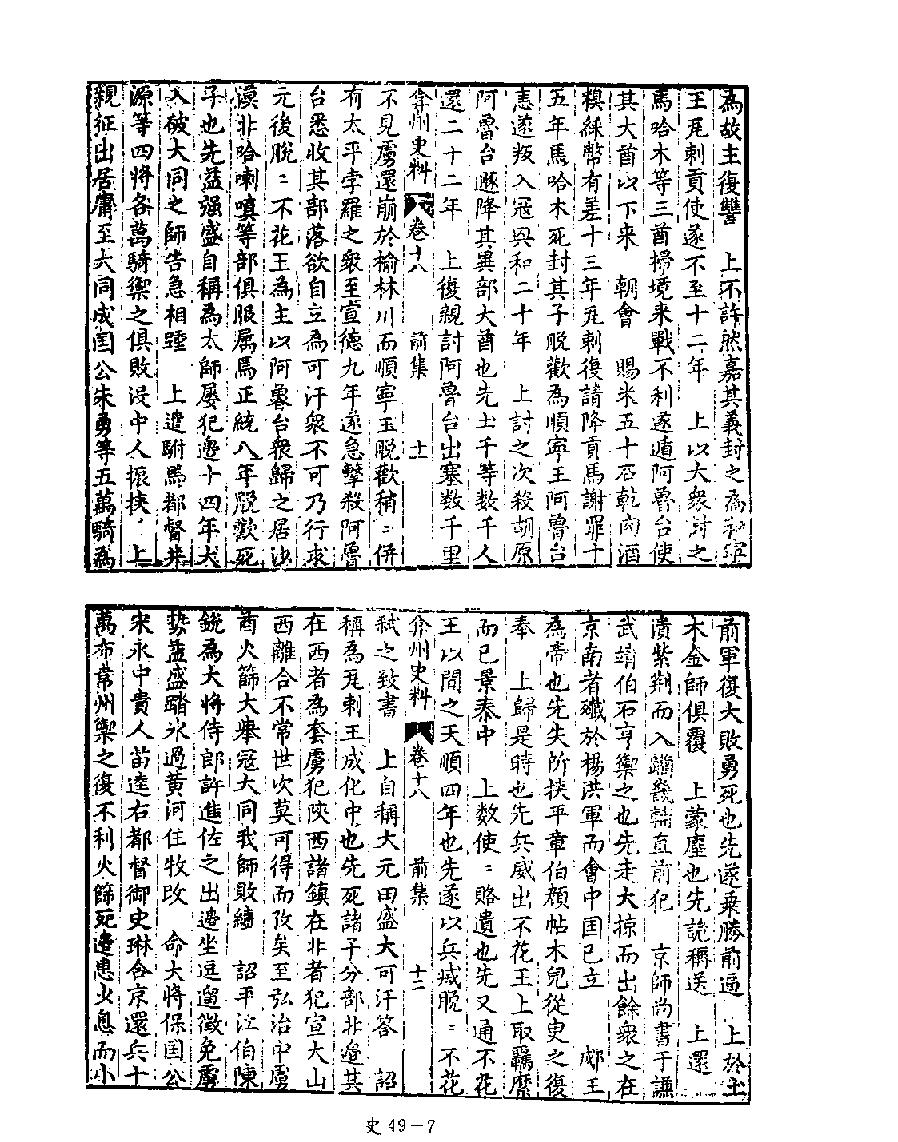 為故主復讐　上不許然嘉其義封之為和寧
王瓦剌貢使遂不至十二年　上以大衆討之
馬哈木等三酋掃境來戰不利遂遁阿魯台使
其大酋以下來　朝會　賜米五十石乾肉酒
糗綵幣有差十三年瓦剌復請降貢馬謝罪十
五年馬哈木死封其子脫歡為順寧王阿魯台
恚遂叛入冦興和二十年　上討之次殺胡原
阿魯台遯降其異部大酋也先土千等數千人
還二十二年　上復親討阿魯台出塞数千里
弇州史料　卷十八　前集　十一
不見虜還崩於榆林川而順寧王脫歡稍〻併
有太平孛羅之衆至宣德九年遂急擊殺阿魯
台悉收其部落欲自立為可汗衆不可乃行求
元後脫〻不花王為主以阿魯台衆歸之居沙
漠非哈喇嗔等部俱服属焉正統八年脫歡死
子也先益强盛自稱為太師屢犯邉十四年大
入破大同之師告急相踵　上遣駙馬都督井
源等四將各萬騎禦之俱敗没中人振挾　上
親征出居庸至大同成国公朱勇等五萬騎為
前軍復大敗勇死也先遂乗勝前逼　上於土
木金師俱覆　上蒙塵也先詭稱送　上還
潰紫荆而入躪畿輔直前犯　京師尚書于謙
武靖伯石亨禦之也先走大掠而出餘衆之在
京南者殲於楊洪軍而會中国已立　郕王
為帝也先失所挟平章伯顔帖木兒從臾之復
奉　上歸是時也先兵威出不花王上取羈縻
而已景泰中　上数使〻賂遺也先又通不花
王以間之天順四年也先遂以兵烕脫〻不花
弇州史料　卷十八　前集　十二
弑之致書　上自稱大元田盛大可汗答　詔
稱為瓦剌王成化中也先死諸子分部北邉其
在西者為套虜犯陝西諸鎮在非者犯宣大山
西離合不常世次莫可得而攷矣至弘治中虜
酋火篩大舉冦大同我師敗績　詔平江伯陳
銳為大將侍郎許進佐之出邉坐逗遛徵免虜
勢益盛踏氷過黄河住牧改　命大將保国公
宋永中貴人苗逵右都督御史琳合京還兵十
萬布常州禦之復不利火篩死邉患少息而小
史 49—7